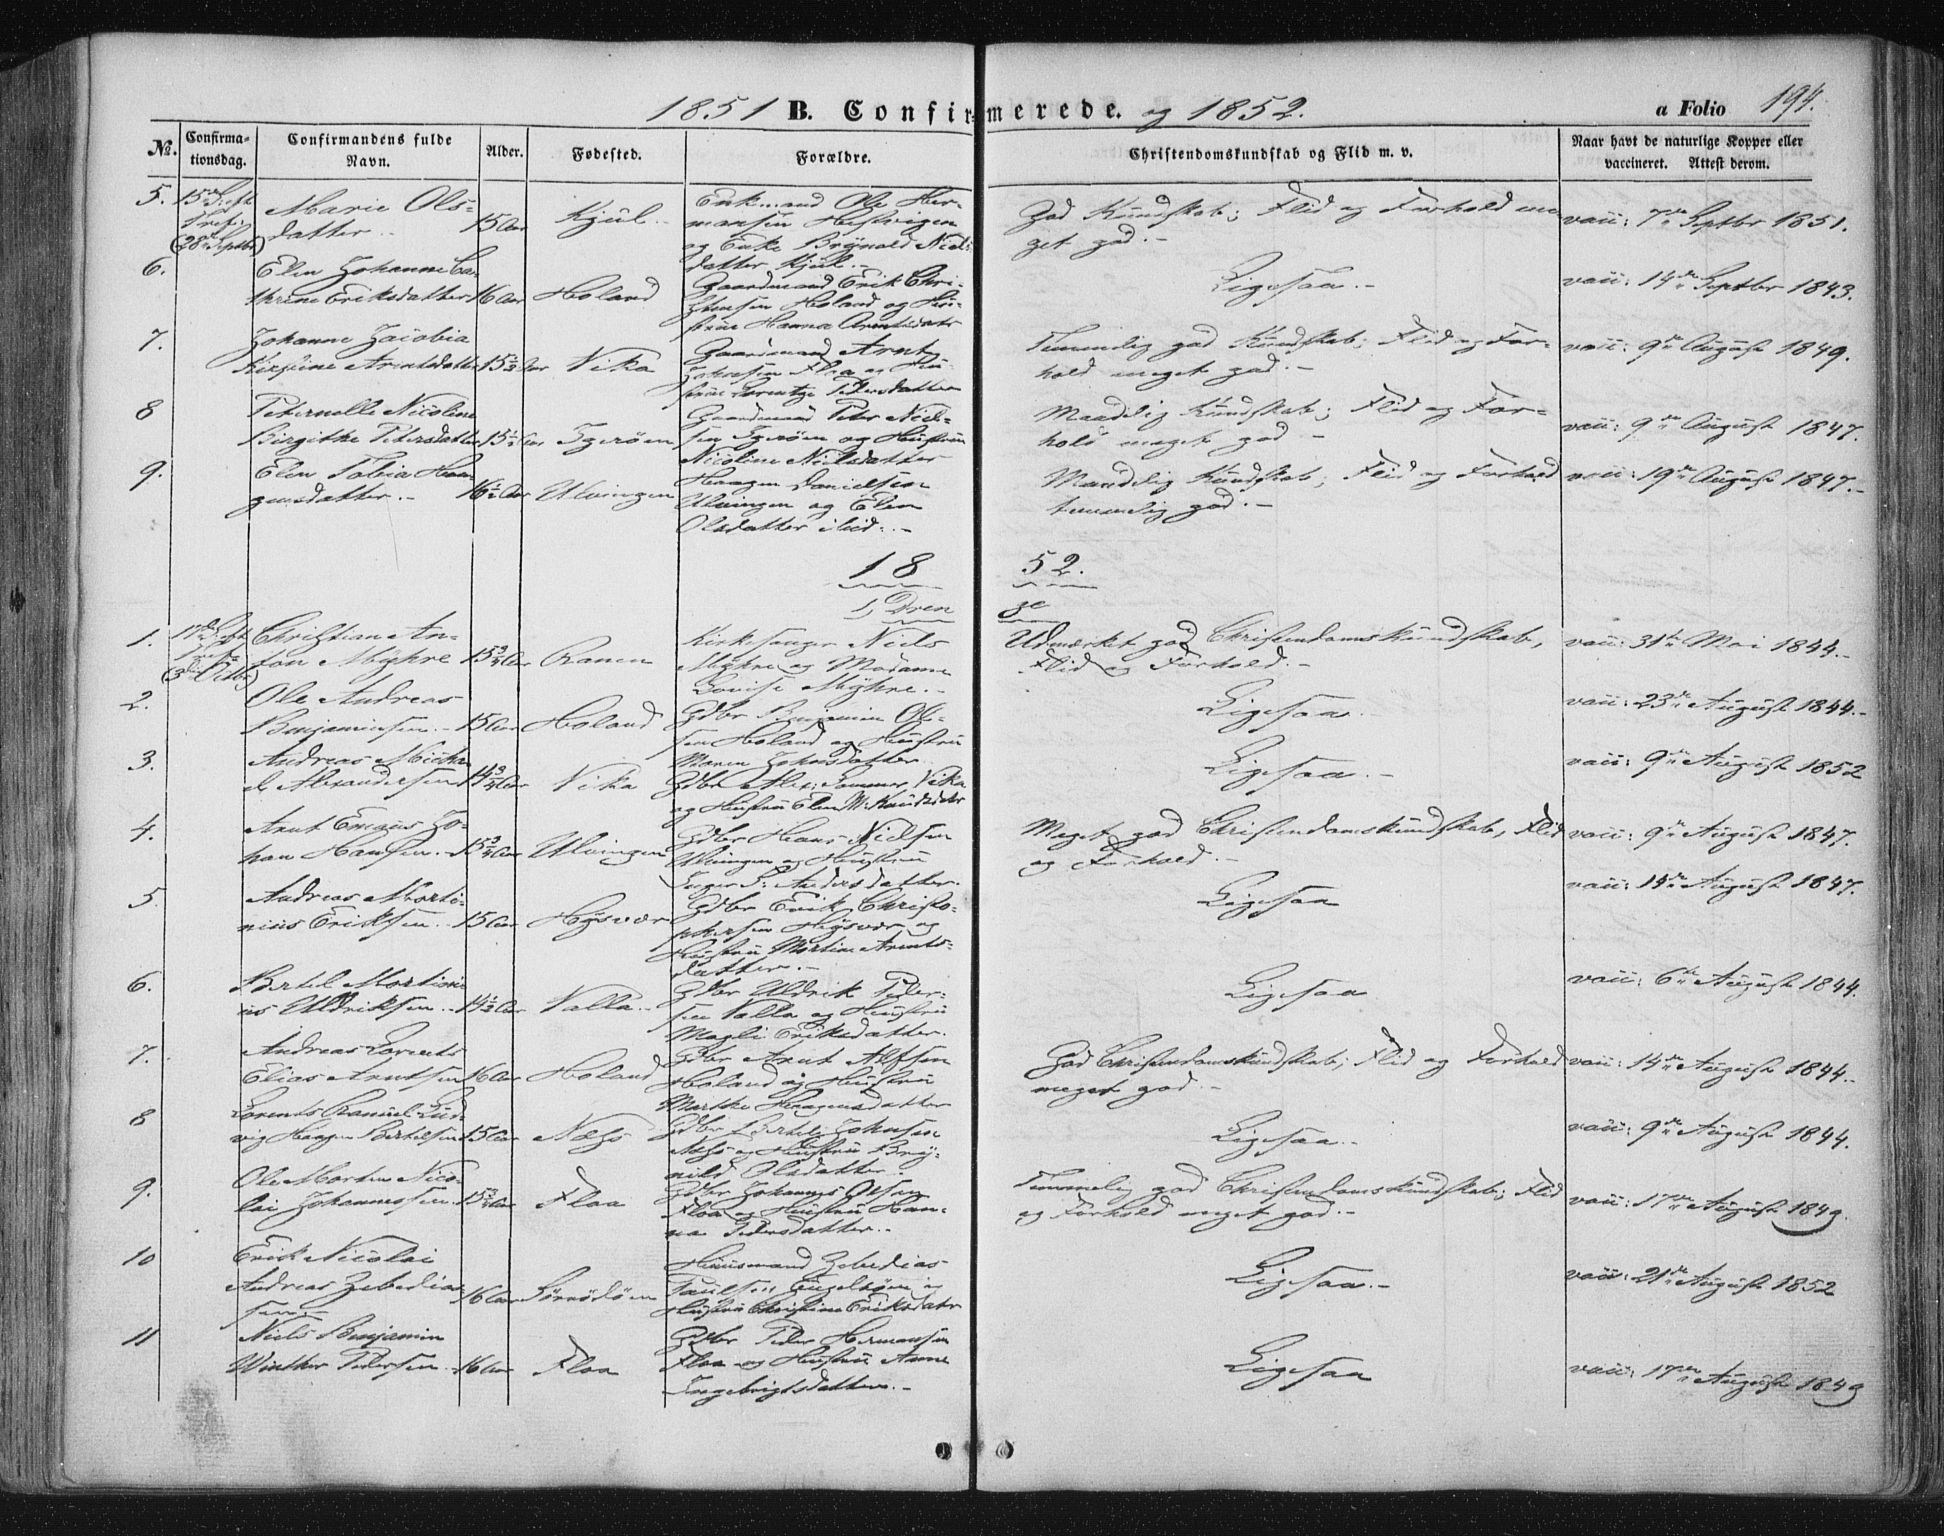 1851 B. Confirmerede. og 1852.
a Folio 194.
No. Confirmationsdag. Confirmandens fulde Navn. Alder. Fødested. Forældre. Christendomskundskab og Flid m. v. Naar havt de naturlige Kopper eller vaccineret. Attest derom.
5. 15de S: eft Marie Ols-
Tref:
(28de Septbr)
datter.. 15 Aar Kjul..
Enkemand Ole Her-
mansen
og Enke Brynild Niels
datter Kjul.-
God Kundskab; Flid og Forhold me
get god.-
vacc: 7de Septbr 1851.
6. Elen Johanne Ca-
thrine Eriksdatter 16 Aar Holand
Gaardmand Erik Chri-
stensen Holand og Hu-
strue Hanna Arntsdatr
Ligesaa.-
vacc: 14de Septbr 1843.
7. Johanne Jacobia
Kirstine Arntsdatter 15½ Aar Vika
Gaardmand Arnt
Johnsen Floa og Hu-
strue Lorentze Pedersdatter
Temmelig god Kundskab; Flid og For-
hold meget god.-
vacc: 9de August 1849.
8 Peternelle Nicoline
Birgithe Petersdatter 15½ Aar Igerøen
Gaardmand Peter Niel-
sen Igerøen og Hustrue
Nicoline Nielsdatter
Maadelig Kundskab; Flid og For-
hold meget god -
vacc: 9de August 1847.
9. Elen Tobia Haa-
gensdatter.- 16½ Aar Ulvingen
Haagen Danielsen
Ulvingen og Elen
Olsdatter ibid..-
Maadelig Kundskab; Flid og Forhold
temmelig god.-
vacc: 19de August 1847.-
18 52.
1, Drenge
1. 17de S: eft
Tref:
(3de Octbr)
Christian An-
ton Myhre 15¾ Aar Ranen
Kirksanger Niels
Myhre og Madame
Lovise Myhre.-
Udmærket god Christendomskundskab,
Flid og Forhold.-
vacc: 31te Mai 1844.-
2. Ole Andreas
Benjaminsen.- 15 Aar Holand
Gdbr Benjamin Ol-
sen Holand og Hustru
Maren Johnsdatter.
Ligesaa.
vacc: 23de August 1844.-
3. Andreas Micha
el Alexandersen 14¾ Aar Vika
Gdbr Alex: Sommer, Vika
og Hustru Elen M: Knudsdatr
Ligesaa.-
vacc: 9de August 1852
4. Arnt Emaus Jo-
han Hansen.- 15¾ Aar Ulvingen
Gdbr Hans Nielsen
Ulvingen og Hustru
Inger S: Andersdatter.
Meget god Christendomskundskab, Flid
og Forhold.-
vacc: 9de August 1847.
5. Andreas Marti-
nius Eriksen.. 15 Aar Høysvær
Gdbr Erik Christo-
phersen Høysvær og
Hustru Martine Arnts-
datter.-
Ligesaa
vacc: 14de August 1847.
6. Bertel Martini-
us Uldriksen.. 14½ Aar Valla..
Gdbr Uldrik Peder-
sen Valla og Hustru
Magli Eriksdatter.
Ligesaa
vacc: 6te August 1844.
7. Andreas Lorents
Elias Arntsen 16 Aar Holand
Gdbr Arnt Alfsen
Holand og Hustru
Marthe Haagensdatter
God Christendomskundskab; Flid og Forhold
meget god.-
vacc: 14de August 1844.-
8 Lorents Ranuel Lud-
vig Haagen Bertelsen 15 Aar Næss
Gdbr Bertel Johnsen
Næss og Hustru Bry-
nild Olsdatter.
Ligesaa..
vacc: 9de August 1844.
9. Ole Morten Nico-
lai Johannessen. 15¾ Aar Floa
Gdbr Johannes Olsen
Floa og Hustru Han-
na Pedersdatter.-
Temmelig god Christendomskundskab; Flid
og Forhold meget god.-
vacc: 17de August 1849.
10 Erik Nicolai
Andreas Zebedias
sen.- 16 Aar Sørrødøen
Huusmand Zebedias
Paulsen Engelsøen og
Hustru Christine Eriksdatr
Ligesaa.-
vacc: 21de August 1852
11 Niels Benjamin
Winther Pedersen.. 16 Aar Floa
Gdbr Peder Hermansen
Floa og Hustru Anne
Ingebrigtsdatter.-
Ligesaa
vacc: 17de August 1849